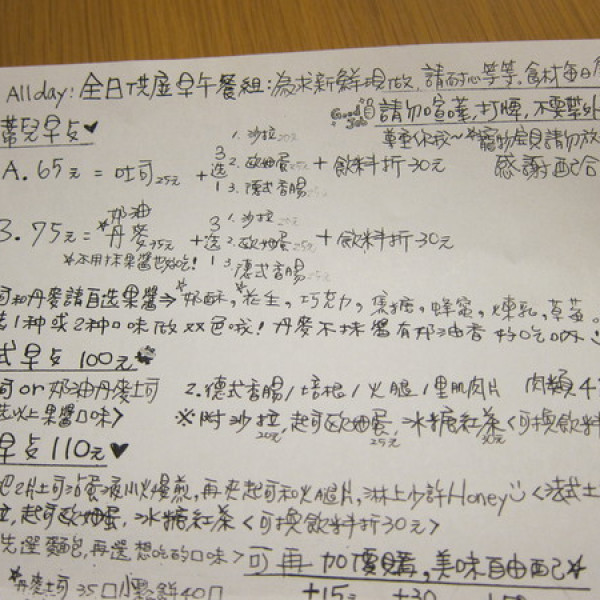 All day: 全日供應早午餐組:為求新鮮現做,請耐心等等,食材每日
Good Job 請勿喧嘩,打牌,不要帶外
蕾兒早点♥
尊重你我~*寵物寶貝請勿放
感謝配合
A. 65元 = 吐司25元 + 3選1 1. 沙拉20元 2. 欧姆蛋25元 3. 德式香腸25元 + 飲料折30元
B. 75元 = *奶油丹麥35元 + 3選1 1. 沙拉20元 2. 欧姆蛋25元 3. 德式香腸25元 + 飲料折30元
*不用抹果醬也好吃!
司和丹麥請自选果醬⇒ 奶酥,花生,巧克力,蔗糖,蜂蜜,煉乳,草莓。
选1种或2种口味做双色哦! 丹麥不抹醬有奶油香 好吃哦
式早点 100元
司 or 奶油丹麥吐司 2.德式香腸/培根/火腿/里肌肉片 肉類4
选以上果醬口味>
※附沙拉20元,起司欧姆蛋25元,冰糖紅茶30元<可換飲料
早点 110元♥
把2片土司沾蛋液小火慢煎,再夾起司和火腿片,淋上少許Honey <法式土
起司欧姆蛋,冰糖紅茶<可換飲料折30元>
先選麵包,再選想吃的口味> 可再加價購,美味自由配*
*丹麥土司 35 鬆餅40
+15元 +30